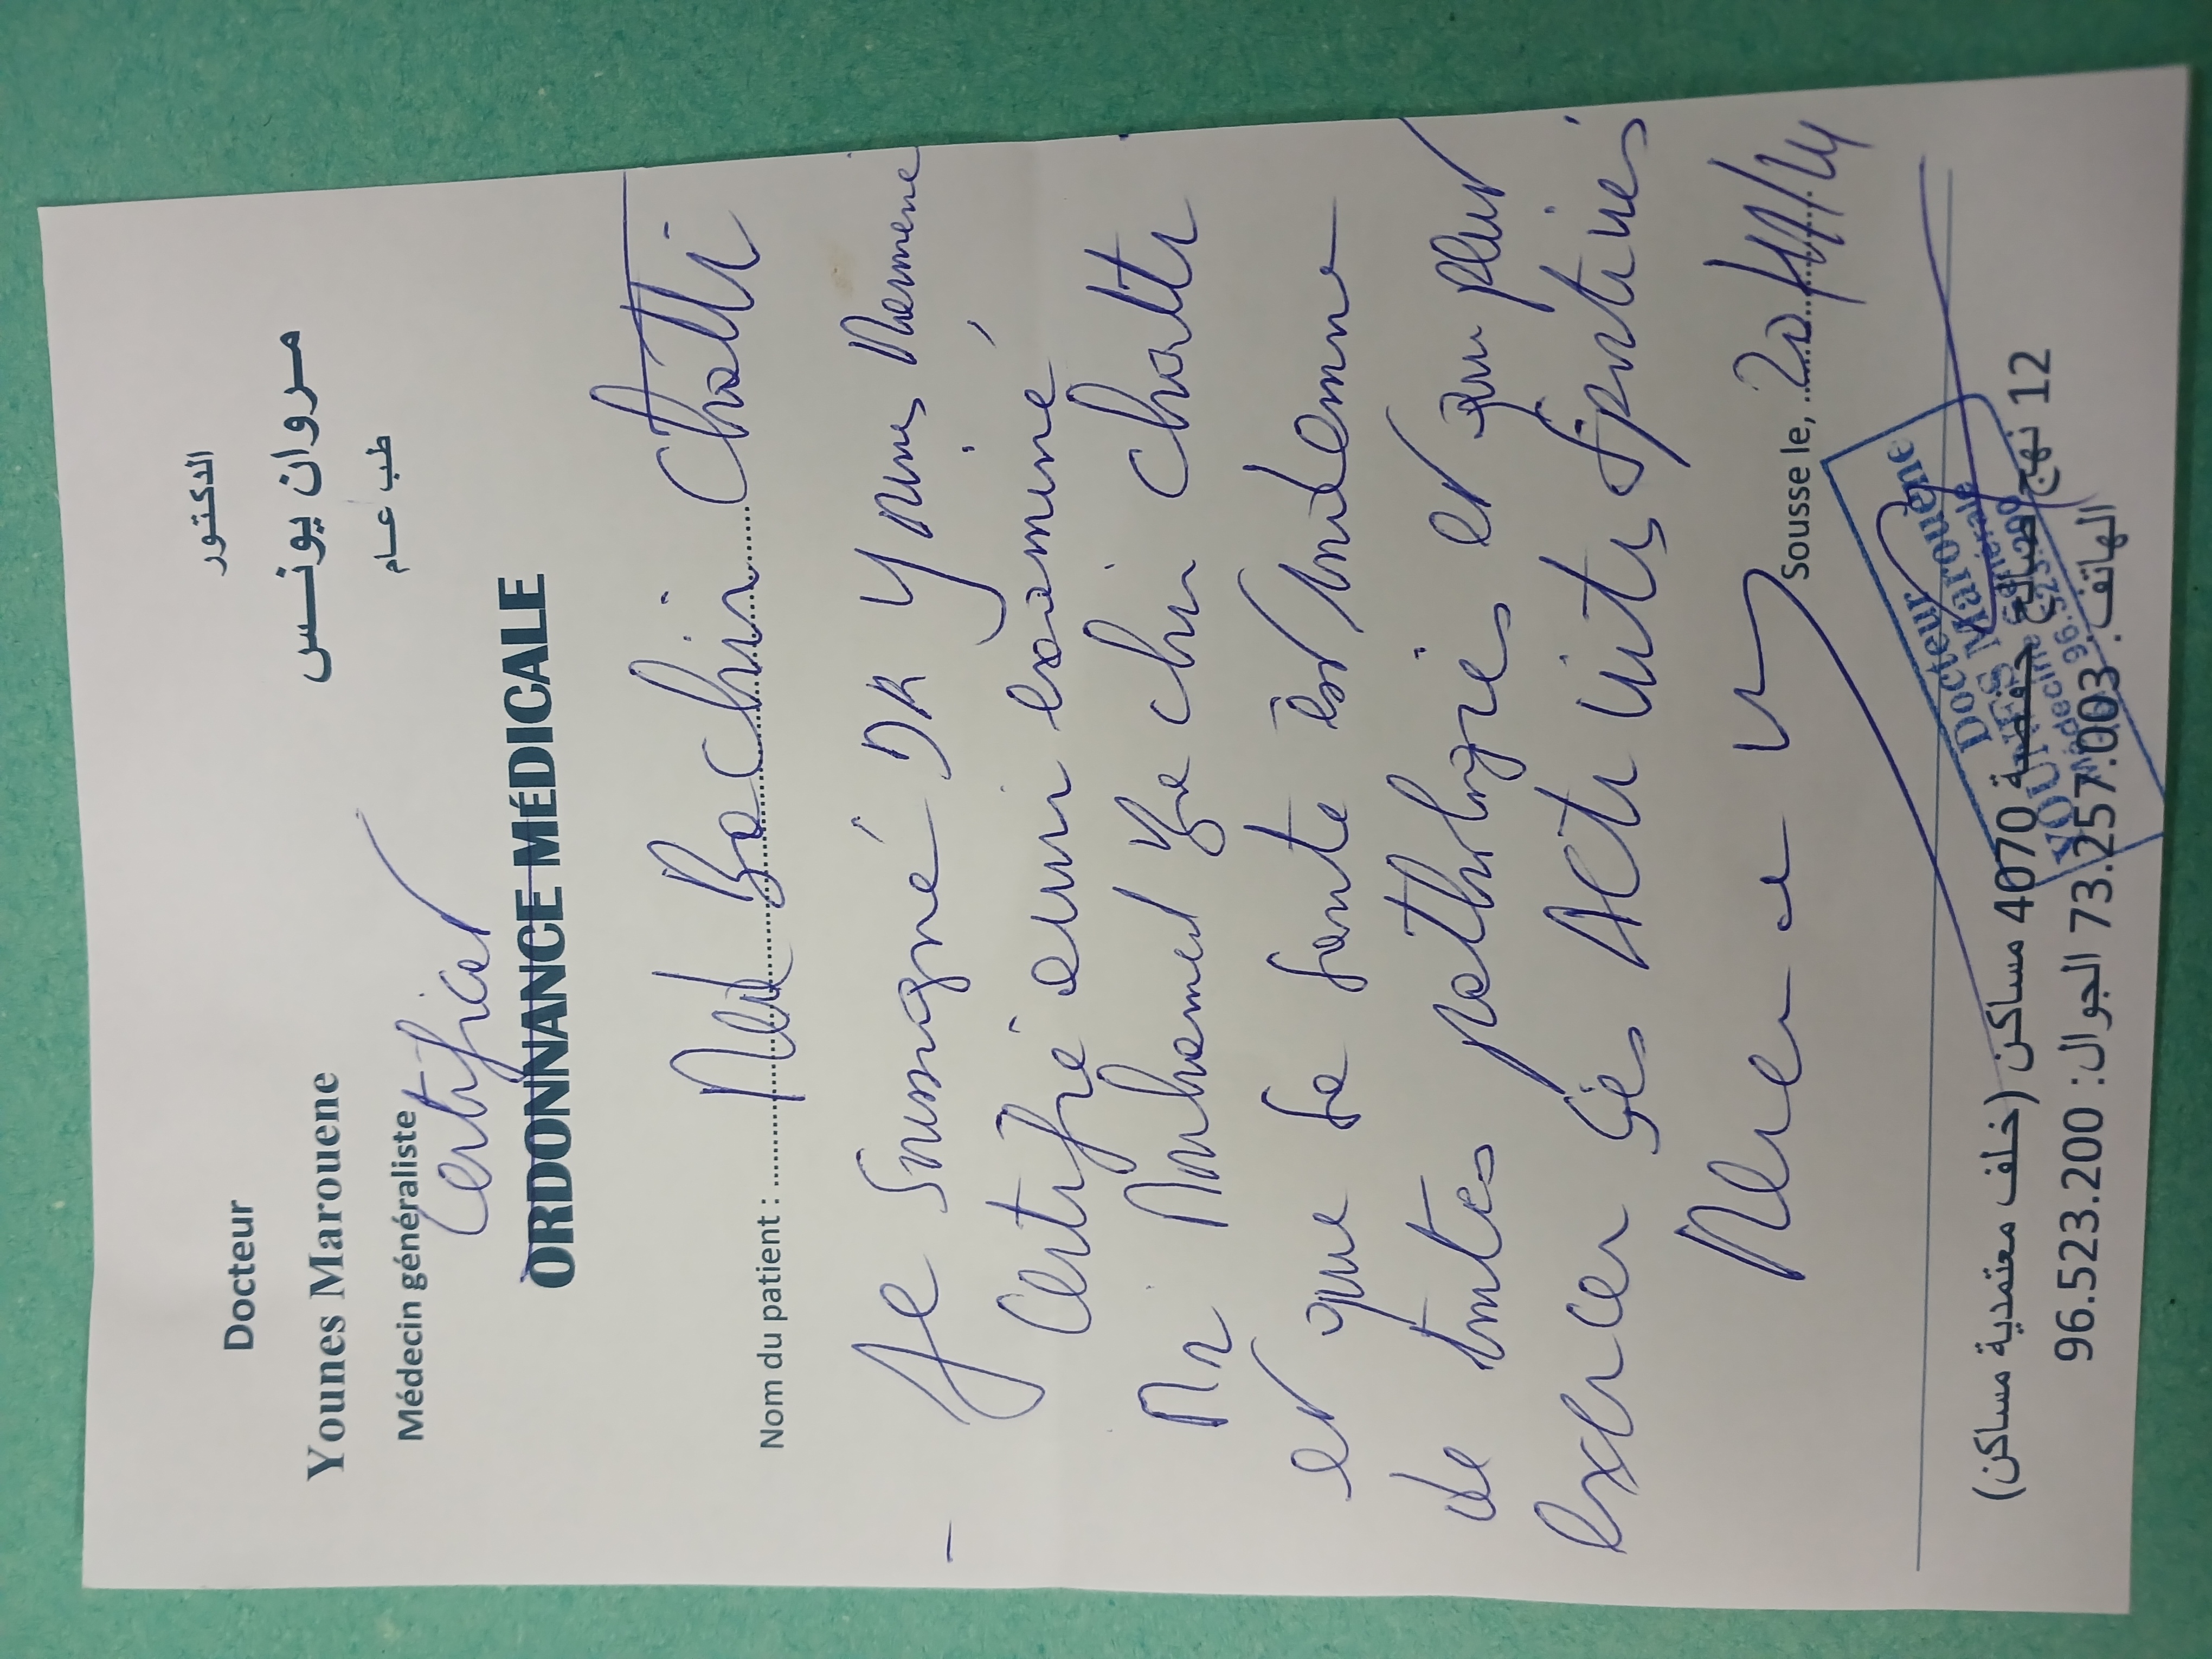 Docteur
Younes Marouene
Médecin généraliste
الدكتور
مروان يونس
طب عام
Certificat
ORDONNANCE MÉDICALE
Nom du patient : Med Bechir Chatti
- Je soussigné DR Younes Marouene
Certifie avoir examiné
Mr Mohamed Bechir Chatti
et que sa santé est indemne
de toutes pathologies et qu peut
exercer ses Activités sportives
Sousse le, 20/11/24
Docteur
YOUNES Marouene
Médecine Générale
96.523.200
12 نهج صالح حفصة 4070 مساكن (خلف معتمدية مساكن)
الهاتف: 73.257.003 الجوال: 96.523.200